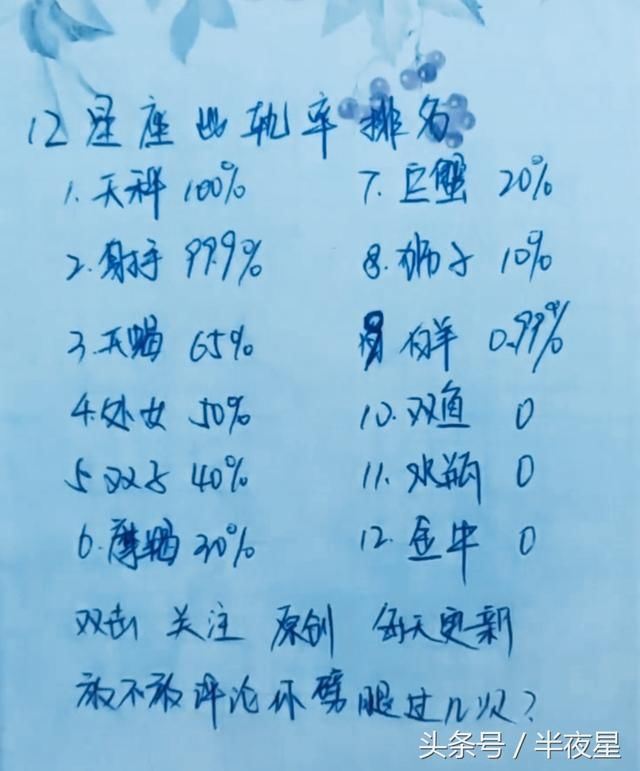 12星座出轨率排名
1.天秤 100%
2.射手 99.9%
3.天蝎 65%
4.处女 50%
5.双子 40%
6.摩羯 30%
7.巨蟹 20%
8.狮子 10%
9 白羊 0.99%
10.双鱼 0
11.水瓶 0
12.金牛 0
双击 关注 原创 每天更新
敢不敢评论你劈腿过几次?
头条号/半夜星